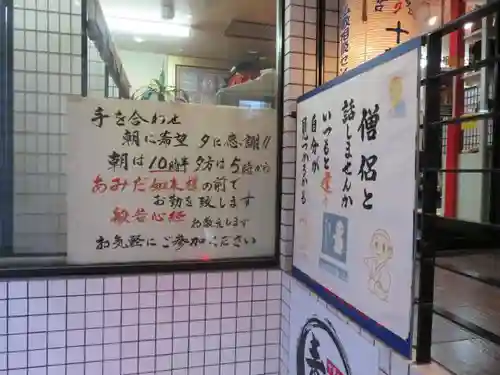 手を合わせ
朝に希望 夕に感謝!!
朝は10時半 夕方は5時から
あみだ如来様の前で
お勤を致します
般若心経 お教えします
お気軽にご参加ください
僧侶と
話しませんか
いつもと違う
自分が
見つかるかも